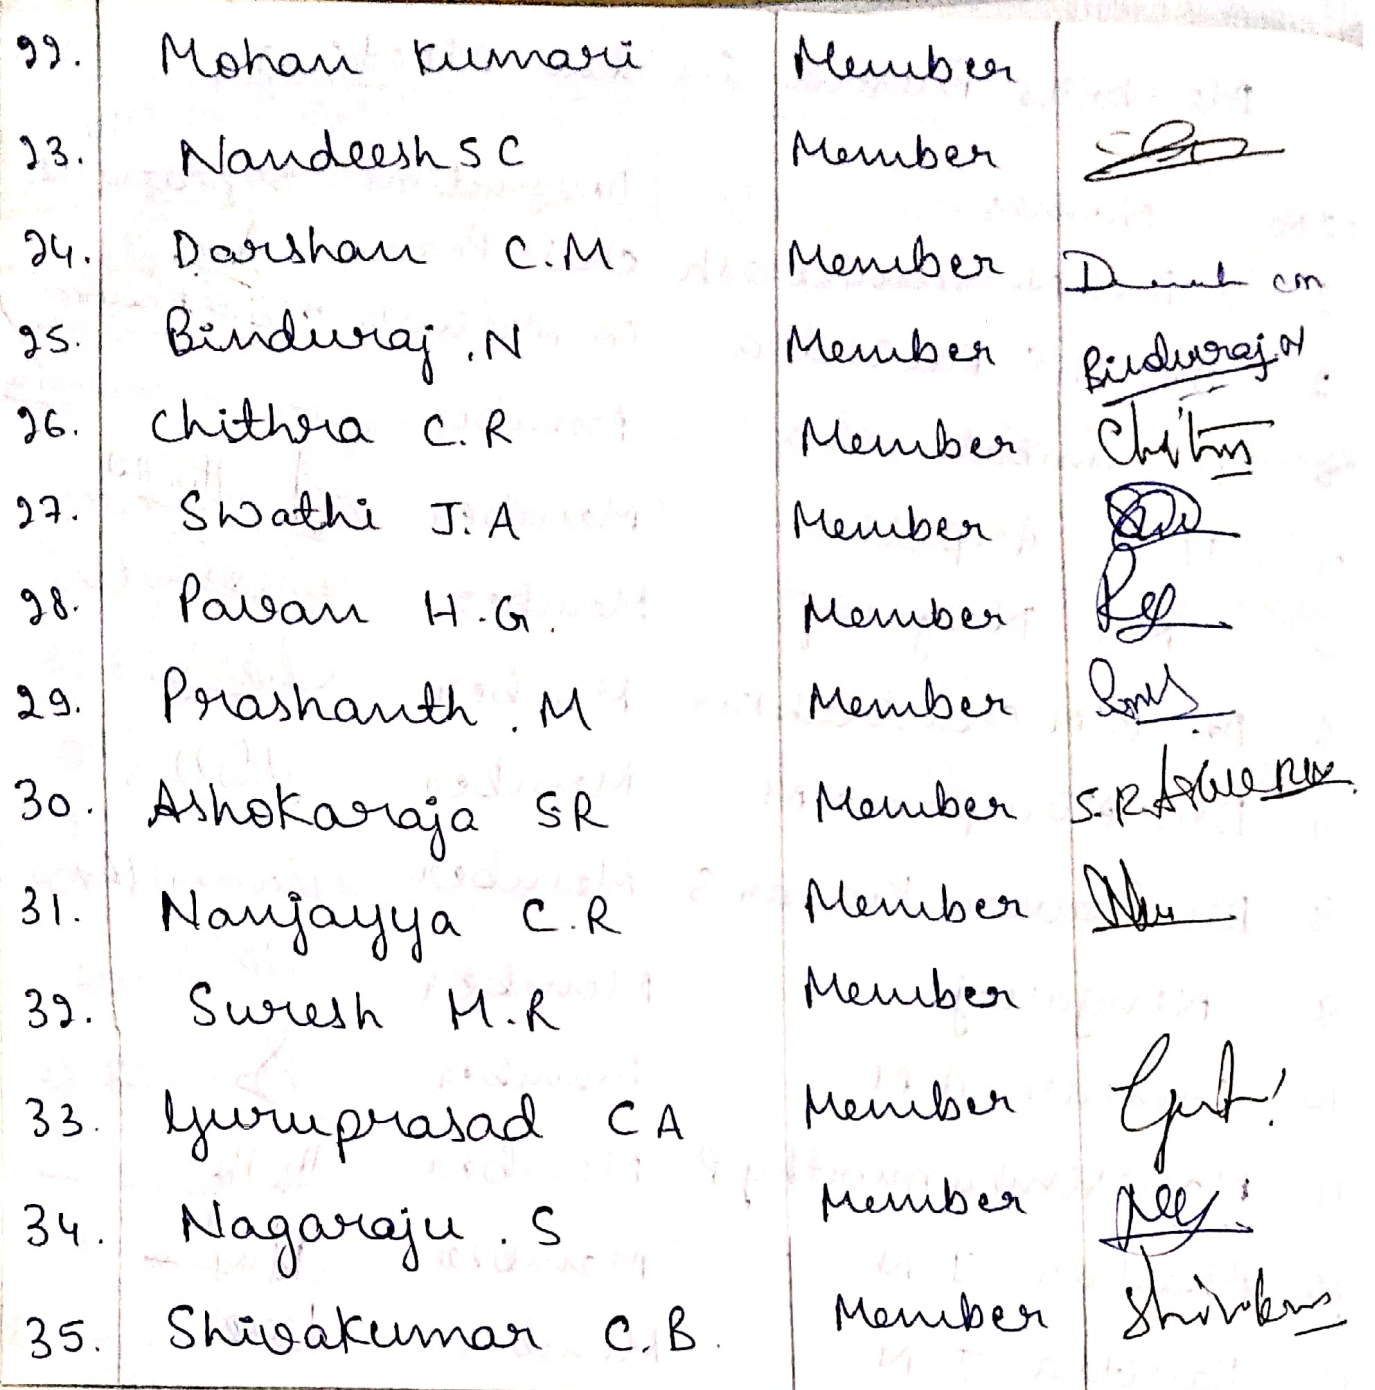 22. Mohan Kumari Member
23. Nandeesh S C Member
24. Darshan C.M Member cm
25. Binduraj .N Member Binduraj.N
26. Chithra C.R Member
27. Swathi J.A Member
28. Pavan H.G. Member
29. Prashanth . M Member
30. Ashokaraja S.R Member S.R
31. Nanjayya C.R Member
32. Suresh M.R Member
33. Guruprasad C A Member
34. Nagaraju . S Member
35. Shivakumar C.B. Member